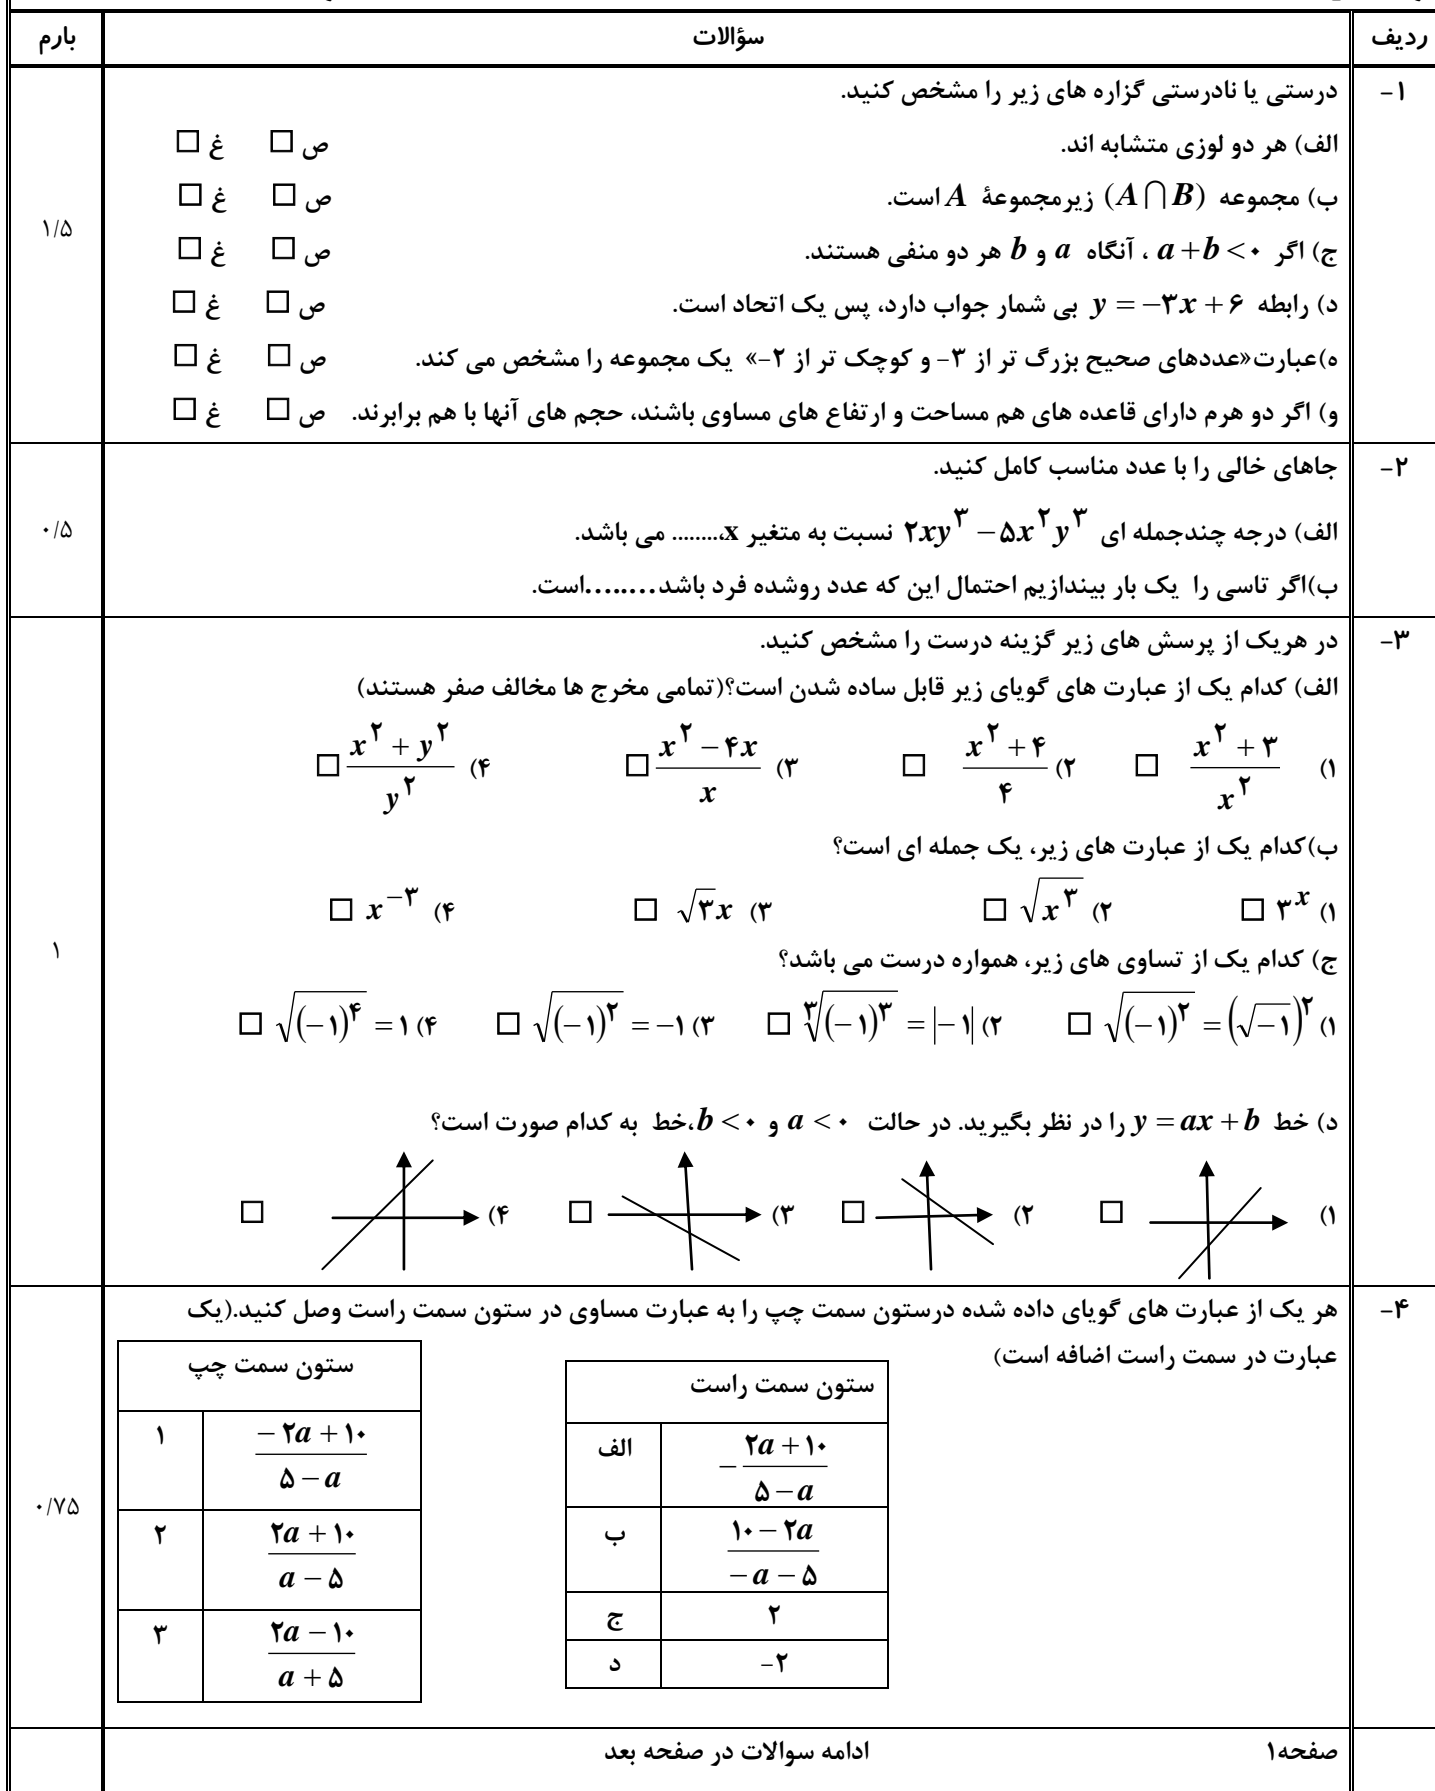 ردیف سؤالات بارم
۱- درستی یا نادرستی گزاره های زیر را مشخص کنید. ۱/۵
الف) هر دو لوزی متشابه اند. ص □ غ □
ب) مجموعه (A∩B) زیرمجموعهٔ A است. ص □ غ □
ج) اگر a+b<۰ ، آنگاه a و b هر دو منفی هستند. ص □ غ □
د) رابطه y=-۳x+۶ بی شمار جواب دارد، پس یک اتحاد است. ص □ غ □
ه)عبارت«عددهای صحیح بزرگ تر از ۳- و کوچک تر از ۲-» یک مجموعه را مشخص می کند. ص □ غ □
و) اگر دو هرم دارای قاعده های هم مساحت و ارتفاع های مساوی باشند، حجم های آنها با هم برابرند. ص □ غ □
۲- جاهای خالی را با عدد مناسب کامل کنید. ۰/۵
الف) درجه چندجمله ای ۲xy^۳-۵x^۲y^۳ نسبت به متغیر x،........ می باشد.
ب)اگر تاسی را یک بار بیندازیم احتمال این که عدد روشده فرد باشد........است.
۳- در هریک از پرسش های زیر گزینه درست را مشخص کنید. ۱
الف) کدام یک از عبارت های گویای زیر قابل ساده شدن است؟(تمامی مخرج ها مخالف صفر هستند)
۱) (x^۲+۳)/x^۲ □ ۲) (x^۲+۴)/۴ □ ۳) (x^۲-۴x)/x □ ۴) (x^۲+y^۲)/y^۲ □
ب)کدام یک از عبارت های زیر، یک جمله ای است؟
۱) ۳^x □ ۲) √(x^۳) □ ۳) √۳x □ ۴) x^-۳ □
ج) کدام یک از تساوی های زیر، همواره درست می باشد؟
۱) √((-۱)^۲)=(√-۱)^۲ □ ۲) ∛((-۱)^۳)=|-۱| □ ۳) √((-۱)^۲)=-۱ □ ۴) √((-۱)^۴)=۱ □
د) خط y=ax+b را در نظر بگیرید. در حالت a<۰ و b<۰،خط به کدام صورت است؟
۱) □ ۲) □ ۳) □ ۴) □
۴- هر یک از عبارت های گویای داده شده درستون سمت چپ را به عبارت مساوی در ستون سمت راست وصل کنید.(یک
عبارت در سمت راست اضافه است) ۰/۷۵
ستون سمت راست
الف -(۲a+۱۰)/(۵-a)
ب (۱۰-۲a)/(-a-۵)
ج ۲
د -۲
ستون سمت چپ
۱ (-۲a+۱۰)/(۵-a)
۲ (۲a+۱۰)/(a-۵)
۳ (۲a-۱۰)/(a+۵)
صفحه۱ ادامه سوالات در صفحه بعد